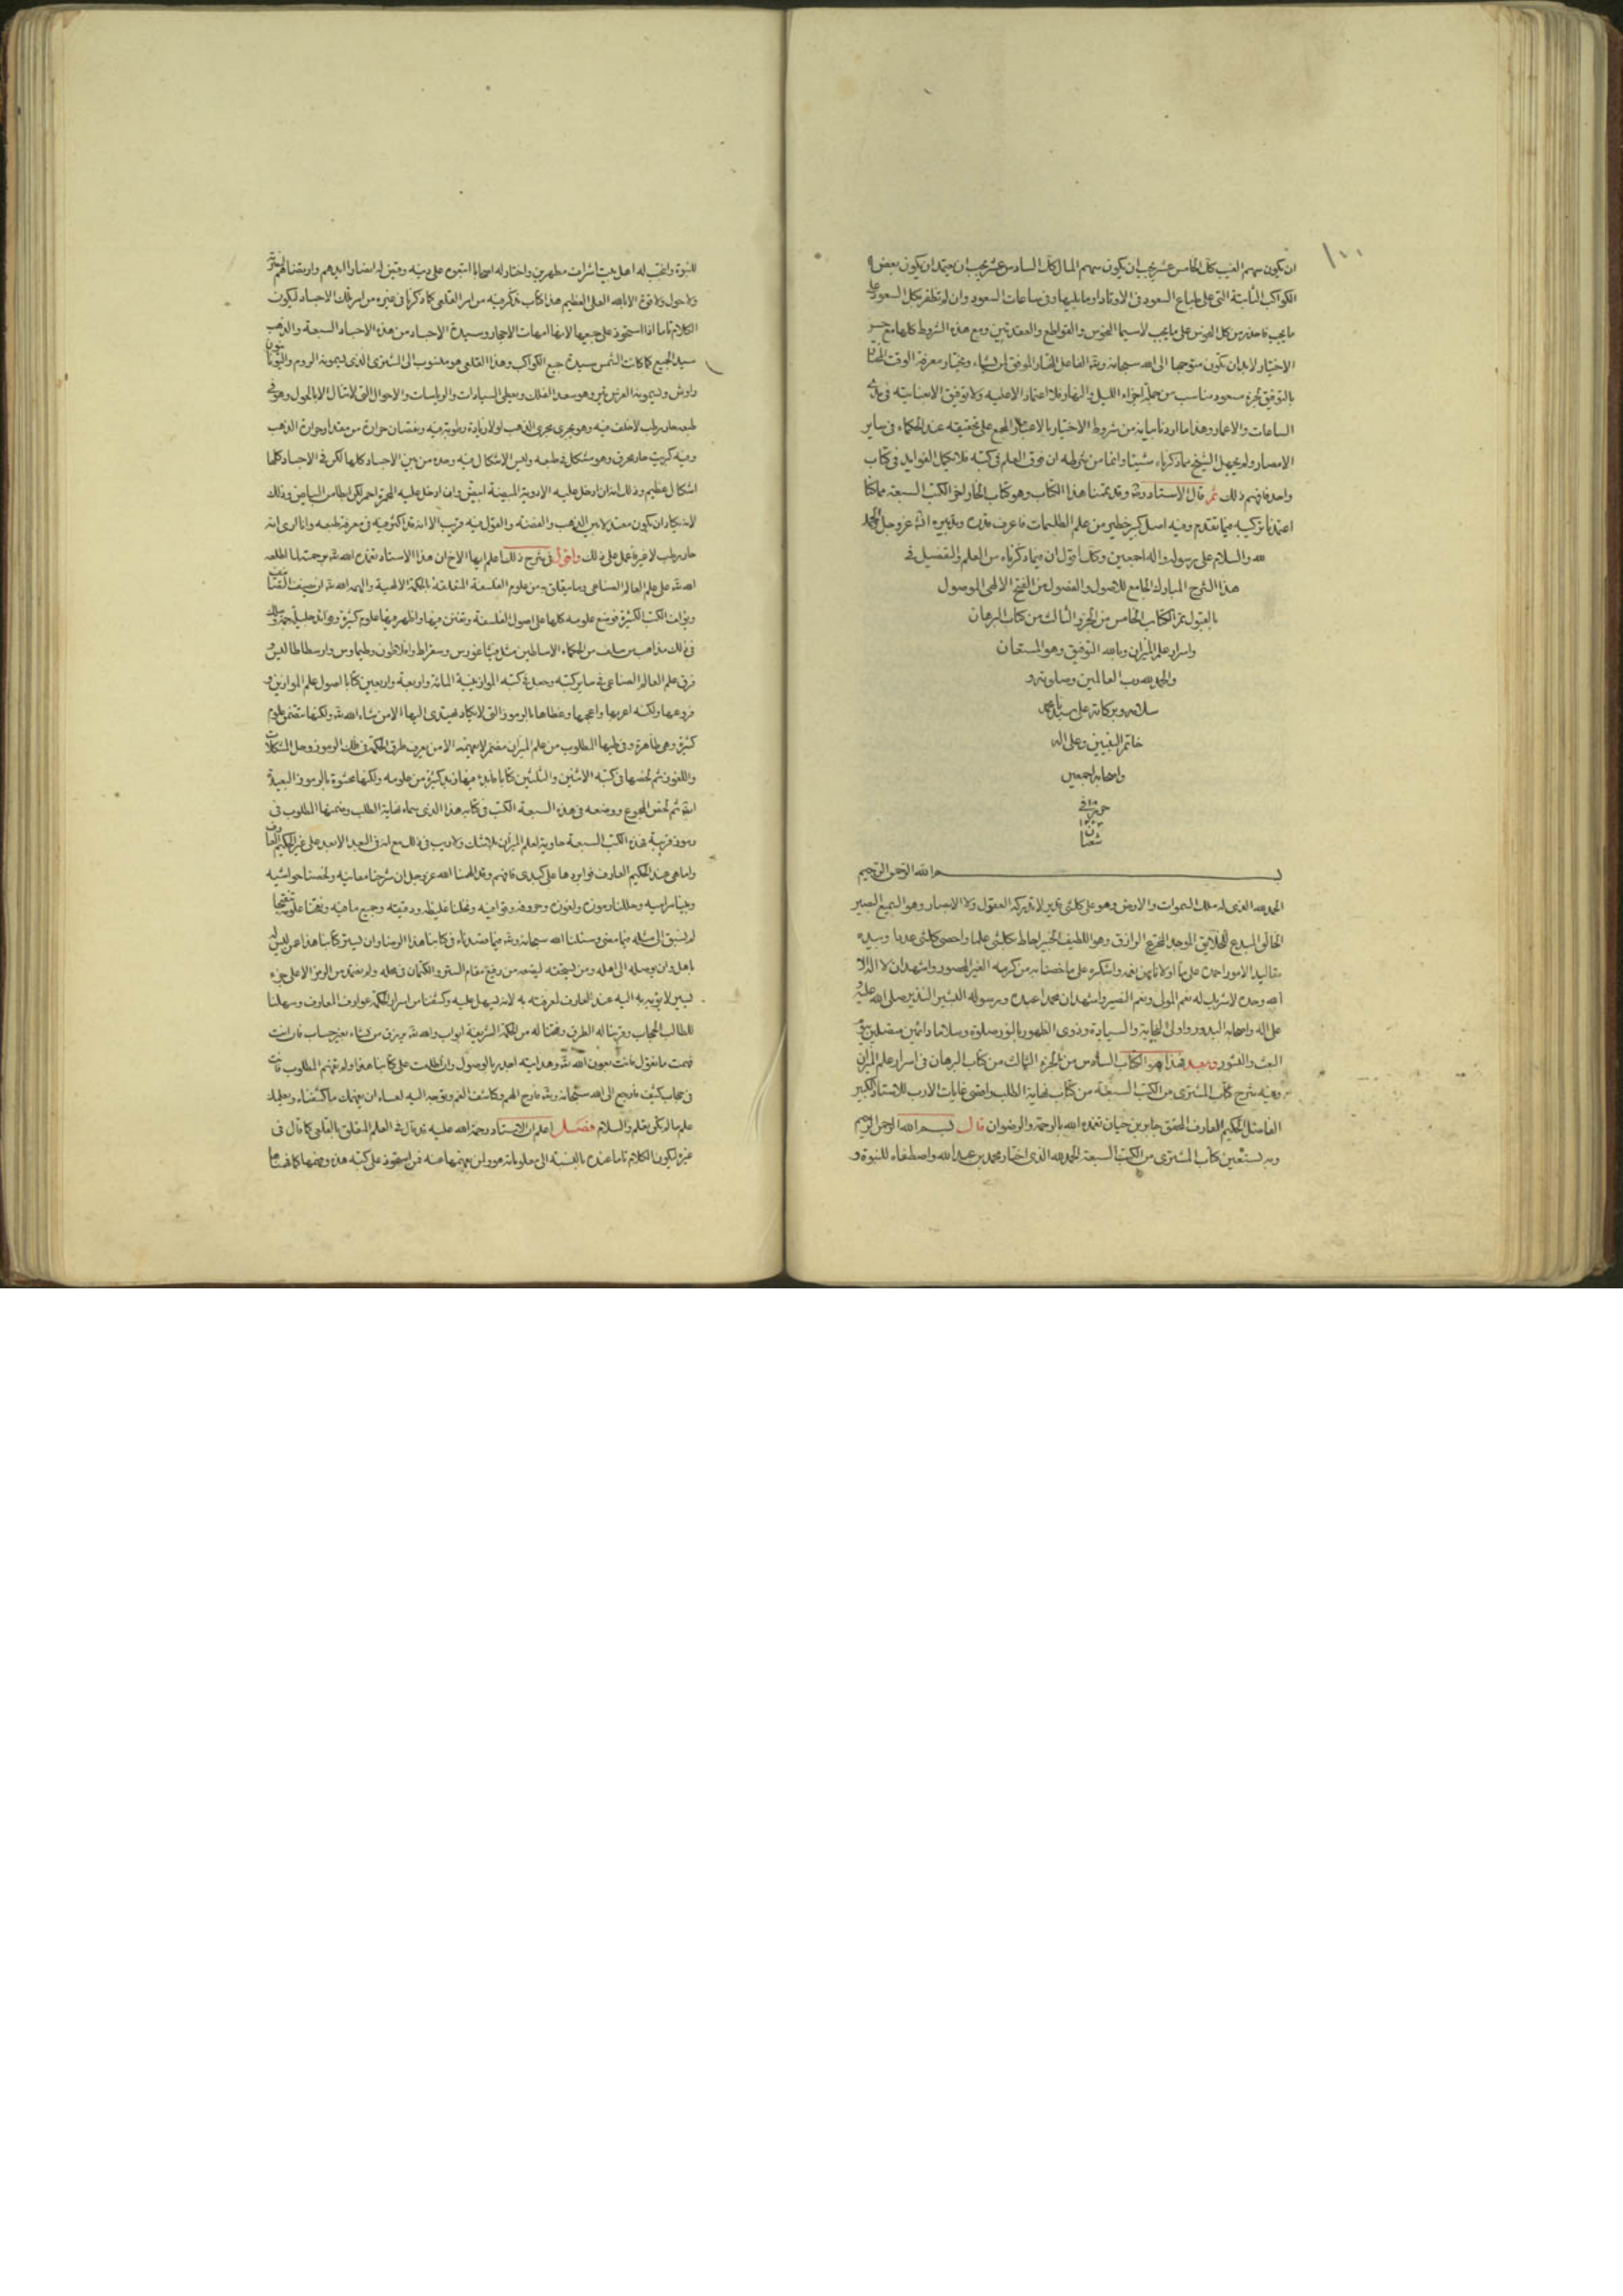 ١٠٠
ان يكون سهم الغيب كك الخامس عشر يجب ان يكون سهم المال كك السادس عشر يجب ان يعتمد ان يكون بعض
الكواكب الثابتة التى على طباع السعود فى الاوتاد او ما يليها وفى ساعات السعود وان لم تظفر بكل السعود على
ما يجب فاحذر من كل النحوس على ما يجب لاسيما النحوس والقواطع والعقدتين ومع هذه الشروط كلها مع
الاختيار لابد ان تكون متوجها الى الله سبحانه وتع الفاعل المختار الموفق لمن يشاء ويختار معرفة الوقت
بالتوفيق لجزء مسعود مناسب من جملة اجزاء الليل والنهار فلا اعتماد الا عليه ولا توفيق الا بعنايته فى
الساعات والاعمار وهذا ما اردنا بيانه من شروط الاختيار بالاعتبار المجمع على تحقيقه عند الحكماء فى ساير
الامصار ولم يجهل الشيخ مما ذكرناه شيئا وانما من شرطه ان فرق العلم فى كتبه فلا تكمل الفوايد فى كتاب
واحد فافهم ذلك ثم قال الاستاد وقد تممنا هذا الكتاب وهو كتاب الخار اخو الكتب السبعة مما كنا
اعتدنا تركيبه فيما تقدم وفيه اصل كبير خطير من علم الطلسمات فاعرف قدره وتدبيره ان عز وجل الحمد
لله والسلام على رسوله واله اجمعين وكك اقول ان فيما ذكرناه من العلم والتفصيل فى
هذا الشرح المبارك الجامع للاصول والفصول من الفتح الالهى الموصول
بالقبول تم الكتاب الخامس من الجزو الثالث من كتاب البرهان
واسرار علم الميزان وبالله التوفيق وهو المستعان
والحمد لله رب العالمين وصلوته و
سلامه وبركاته على سيدنا محمد
خاتم النبيين وعلى اله
واصحابه اجمعين
شعبان
بسم الله الرحمن الرحيم
الحمد لله الذى له ملك السموات والارض وهو على كلشئ قدير لا تدركه العقول ولا الابصار وهو السميع البصير
الخالق المبدع للخلايق الموجد المخترع الرازق وهو اللطيف الخبير احاط بكلشئ علما واحصى كلشئ عددا وبيده
مقاليد الامور احمده على ما اولانا من نعمه واشكره على ما خصنا به من كرمه الغير المحصور واشهد ان لا اله الا
الله وحده لا شريك له نعم المولى ونعم النصير واشهد ان محمدا عبده ورسوله البشير النذير صلى الله عليه و
على اله واصحابه البدور واولى النجابة والسيادة وذوى الظهور بالنور صلوة وسلاما دائمين متصلين
البعث والنشور وبعد فهذا هو الكتاب السادس من الجزء الثالث من كتاب البرهان فى اسرار علم الميزان
وفيه شرح كتاب المشترى من الكتب السبعة من كتاب نهاية الطلب واقصى غايات الارب للاستاد الكبير
الفاضل الحكيم العارف المحقق جابر بن حيان تغمده الله بالرحمة والرضوان قال بسم الله الرحمن الرحيم
وبه نستعين كتاب المشترى من الكتب السبعة الحمد لله الذى اختار محمد بن عبد الله واصطفاه للنبوة و
للنبوة وانتخب له اهل بيت اشراف مطهرين واختار له اصحابا اتبعوه على دينه وقيض له انصارا
ولا حول ولا قوة الا بالله العلى العظيم هذا كتاب نذكر فيه من امر القلعى كما ذكرنا فى غيره من امر تلك الاجساد ليكون
الكلام تاما اذا استحوذ على جميعها لانها امهات الاحجار وسيدة الاجساد من هذه الاجساد السبعة والذهب
سيد الجميع كما كانت الشمس سيدة جميع الكواكب وهذا القلعى هو منسوب الى المشترى الذى يسمونه الروم واليونان
زاوش ويسمونه الفرس تير وهو سعد الفلك ويعطى السيادات والرياسات والاحوال التى لا تنال الا بالمول وهو فى
طبعه حار رطب لا خلف فيه وهو يجرى مجرى الذهب لولا زيادة رطوبة فيه ونقصان حرارة من مقدار حرارة الذهب
وفيه كبريت حار محرق وهو مشكل فى طبعه وليس الاشكال فيه وحده من بين الاجساد كلها لكن فى الاجساد كلها
اشكال عظيم وذلك انه ان ادخل عليه الادوية المبيضة ابيض وان ادخل عليه المحمرة احمر لكن الى البياض وذلك
لا يكاد ان يكون معتدلا بين الذهب والفضة والقول فيه قريب الا انه قد اكثر فيه فى معرفة طبعه وانا ارى انه
حار رطب لا غير فاعمل على ذلك واقول فى شرح ذلك اعلم ايها الاخ ان هذا الاستاد تغمده الله تع برحمته لما اطلعه
الله تع على علم العالم الصناعى وما يتعلق به من علوم الفلسفة المتعلقة بالحكمة الالهية والهمه الله تع ان يصنف
ويؤلف الكتب الكثيرة فوضع علومه كلها على اصول الفلسفة وتفنن فيها واظهر فيها علوم كثيرة وفوائد جليلة جمة وسلك
فى ذلك مذاهب من سلف من الحكماء الاساطين مثل فيثاغورس وسقراط وافلاطون وطيماوس وارسطاطاليس و
فرق علم العالم الصناعى فى ساير كتبه وجعل فى كتبه الموازينية المائة واربعة واربعين كتابا اصول علم الموازين و
فروعها ولكنه اعربها واعجمها وغطاها بالرموز التى لا يكاد يهتدى اليها الا من شاء الله تع ولكنها تتضمن علوم
كثيرة وهى ظاهرة وفى طيها المطلوب من علم الميزان مضمر لا يفهمه الا من يعرف طرق الحكمة فى فك الرموز وحل المشكلات
واللغوز ثم لخصها فى كتبه الاثنين والثلثين كتابا فابدى فيها زبد كثيرة من علومه ولكنها محشوة بالرموز البعيدة
ثم لخص المجموع ووضعه فى هذه السبعة الكتب فى كتابه هذا الذى سماه نهاية الطلب وضمنها المطلوب فى
رموز قريبة فهذه الكتب السبعة حاوية لعلم الميزان بلا شك ولا ريب فى ذلك مع انه فى البعد الابعد على غير الحكيم العارف
واما هى عند الحكيم العارف فواردها على كبدى فافهم وقد الهمنا الله عز وجل ان شرحنا معانيه ولخصنا حواشيه
وبينا مراميه وحللنا رموزه ولغوزه وحروفه وقوافيه ونخلنا غليظه ودقيقه وجميع ما فيه وفتحنا علومه فتحا
لم نسبق الى مثله فيما مضى وسئلنا الله سبحانه وتع فيما قصدناه فى كتابنا هذا الرضا وان يستر كتابنا هذا عمن ليس له
باهل وان يوصله الى اهله ومن يستحقه ليضعه من رفيع مقام الستر والكتمان فى محله ولم نعتمد من الرمز الا على جزء
يسير لا يؤبه به اليه عند العارف لمعرفته به لانه يسهل عليه وكشفنا من اسرار الحكمة عوارف المعارف وسهلنا
للطالب الحجاب وقربنا له الطرق وفتحنا له من الحكمة الشريفة ابواب والله تع يرزق من يشاء بغير حساب فان انت
فهمت ما نقول فانت بعون الله تع وهدايته اجدر بالوصول وان اطلعت على كتابنا هذا ولم تفهم المطلوب فانت
فى حجاب كثيف فارجع الى الله سبحانه وتع فارج الهم وكاشف الغم وتوجه اليه لعساه ان يفهمك ما كشفناه ويعلمك
علم ما لم تكن تعلم والسلام فصل اعلم ان الاستاد رحمة الله عليه قد قال فى العلم المتعلق بالقلعى كما قال فى
غيره ليكون الكلام تاما عنده بالنسبة الى معلوماته هو ولمن يفهمها عنه فمن استحوذ على كتبه هذه وفهمها كما فهمناها